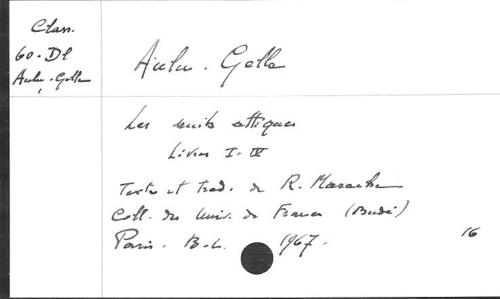 Class.
60-Dl
Aulu-Gelle
Aulu-Gelle
Les nuits attiques
Livres I-IV
Texte et trad. de R. Marache
Coll. des Univ. de France (Budé)
Paris. B-L. 1967.
16